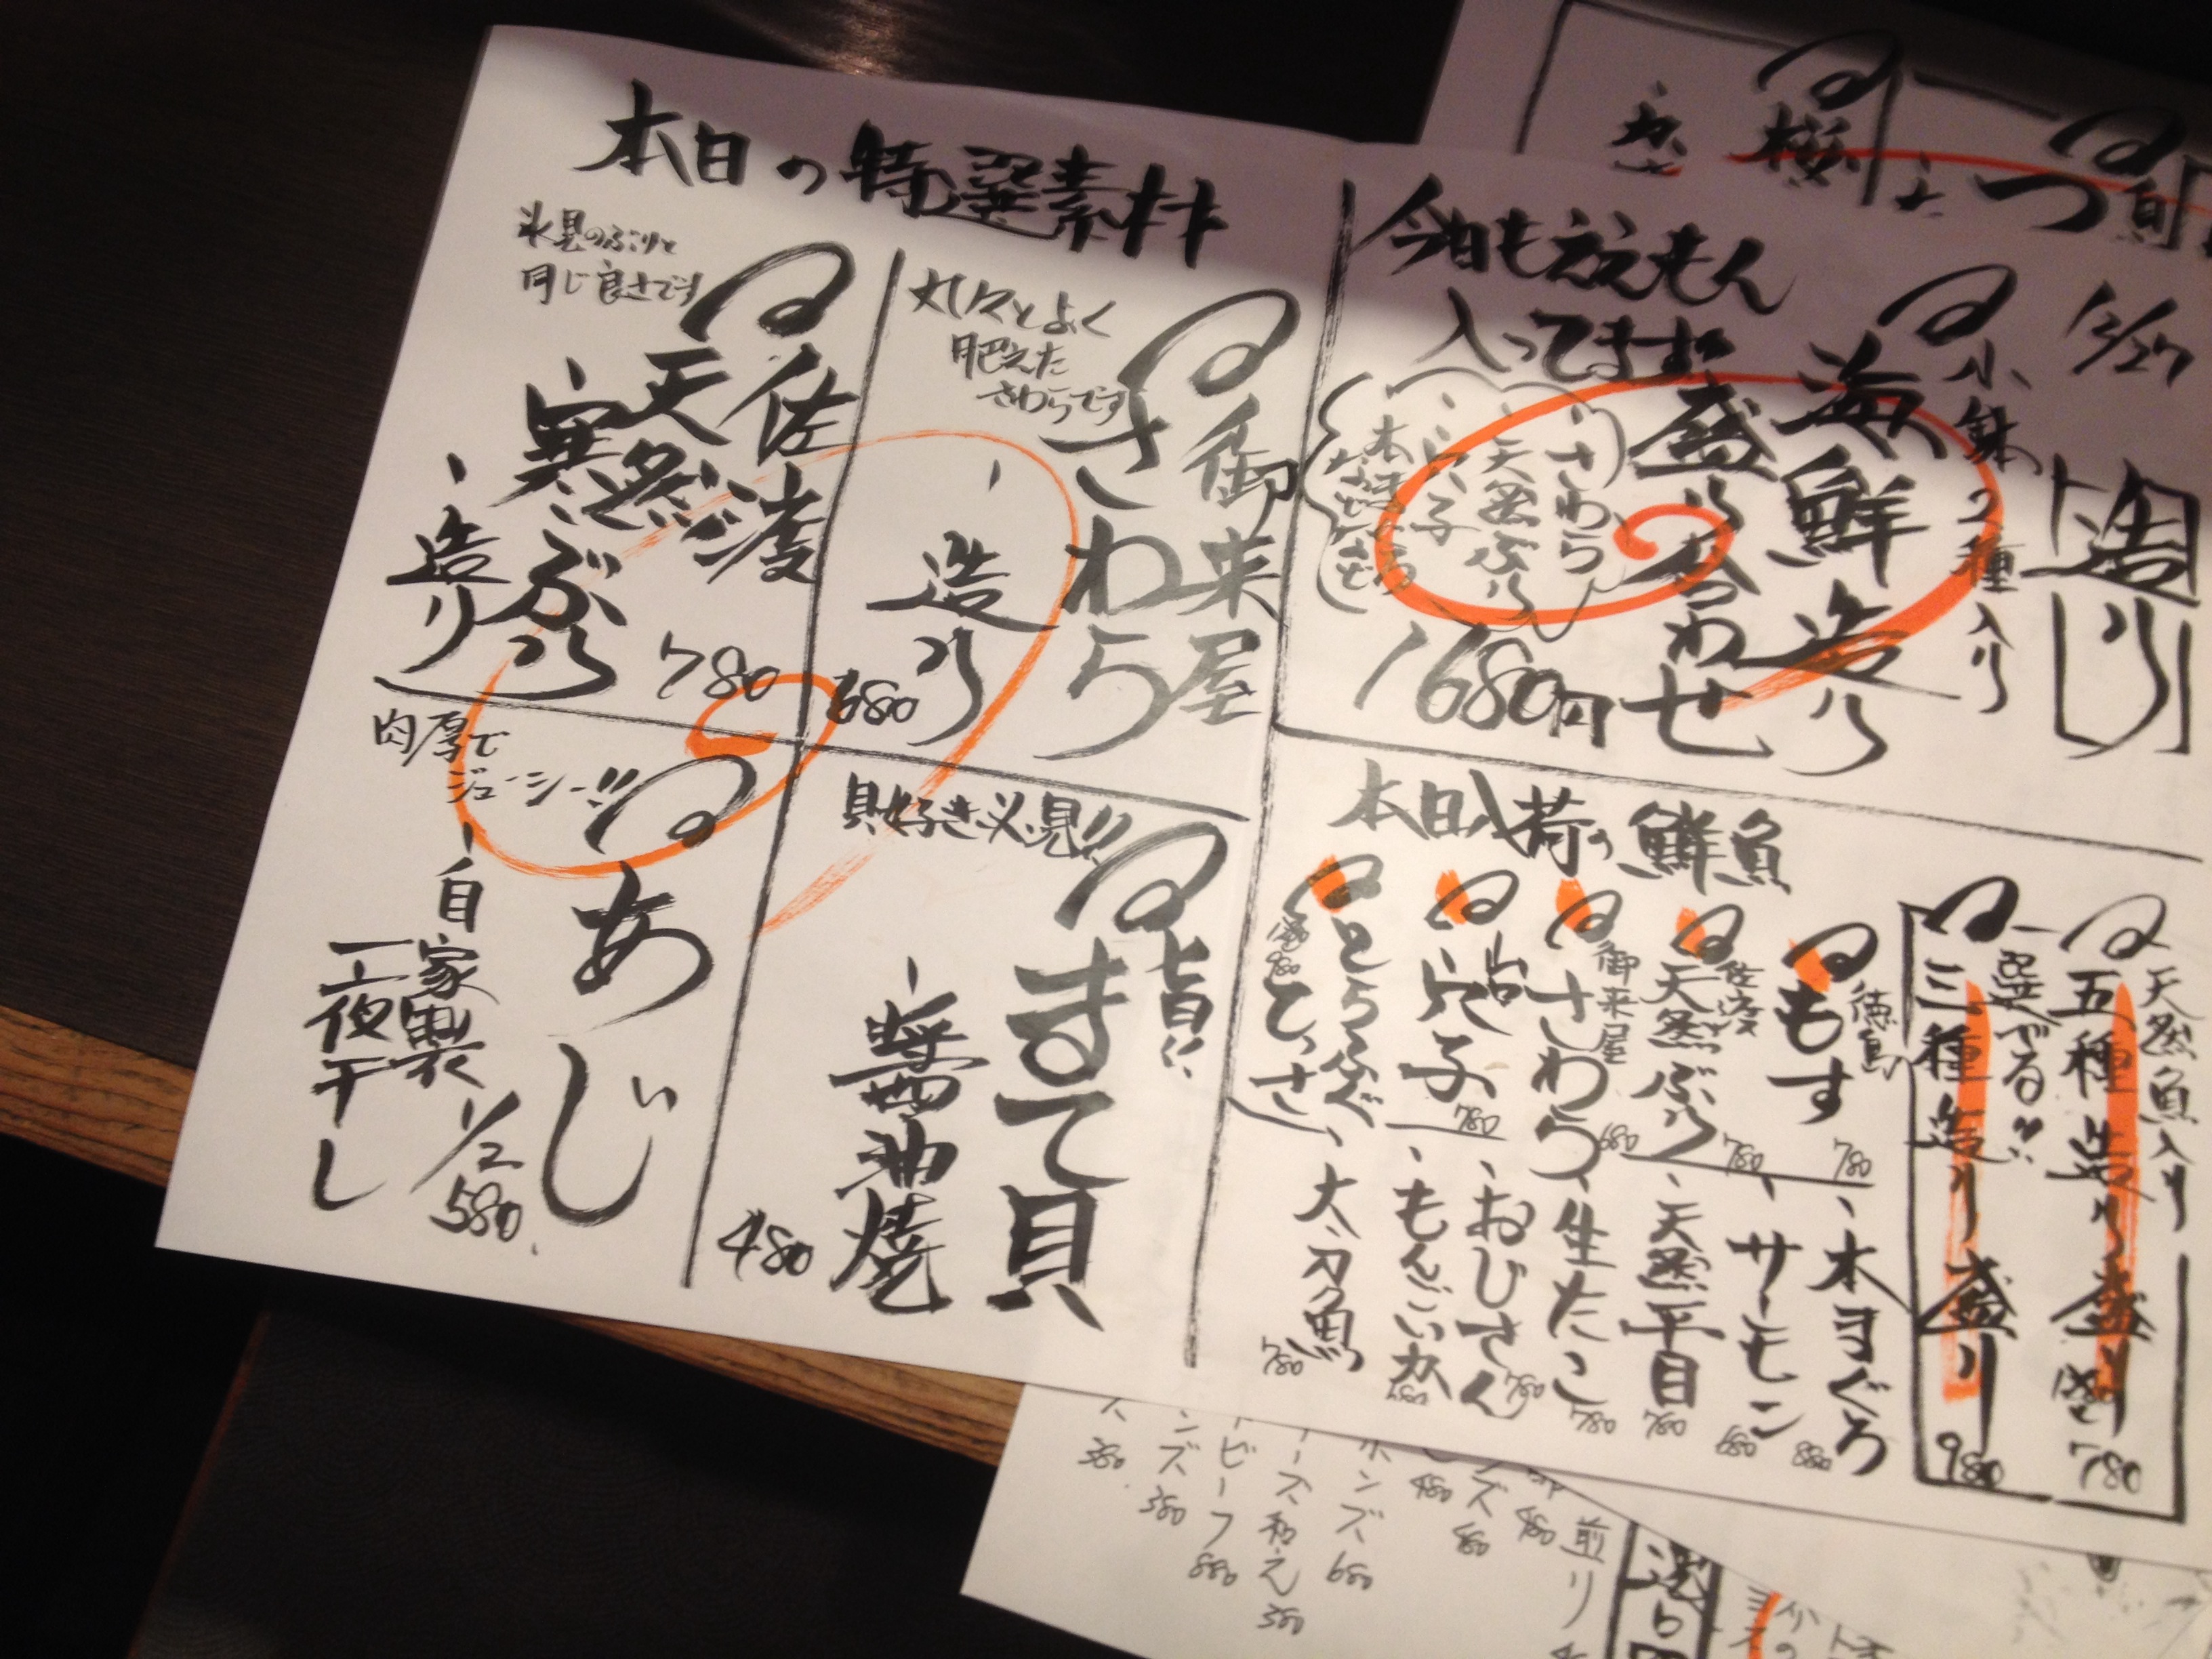 12/27
造り
小鉢2種入り
海鮮造り
盛り合わせ
1680円
今日もええもん
入ってます
さわら
天然ぶり
穴子
本まぐろ
など
天然魚入り
五種造り盛り
1780
選べる!!
三種造り盛り
980
本日入荷の鮮魚
徳島
もす
780
佐渡
天然ぶり
780
御来屋
さわら
680
穴子
780
とらふぐ
てっさ
980
本まぐろ
880
サーモン
680
天然平目
780
生たこ
780
おじさん
780
もんごいか
太刀魚
780
本日の特選素材
御来屋
さわら
丸々とよく
肥えた
さわらです
造り
680
佐渡
天然
寒ぶり
氷見のぶりと
同じ良さです
造り
780
貝好き必見!!
旨い
まて貝
醤油焼
480
肉厚で
ジューシー!!
あじ
自家製
一夜干し
1/2
580
煎り
480
ズ
480
ポンズ
680
ース和え
380
トビーフ
880
ンズ
380
ス
380
旬
桜